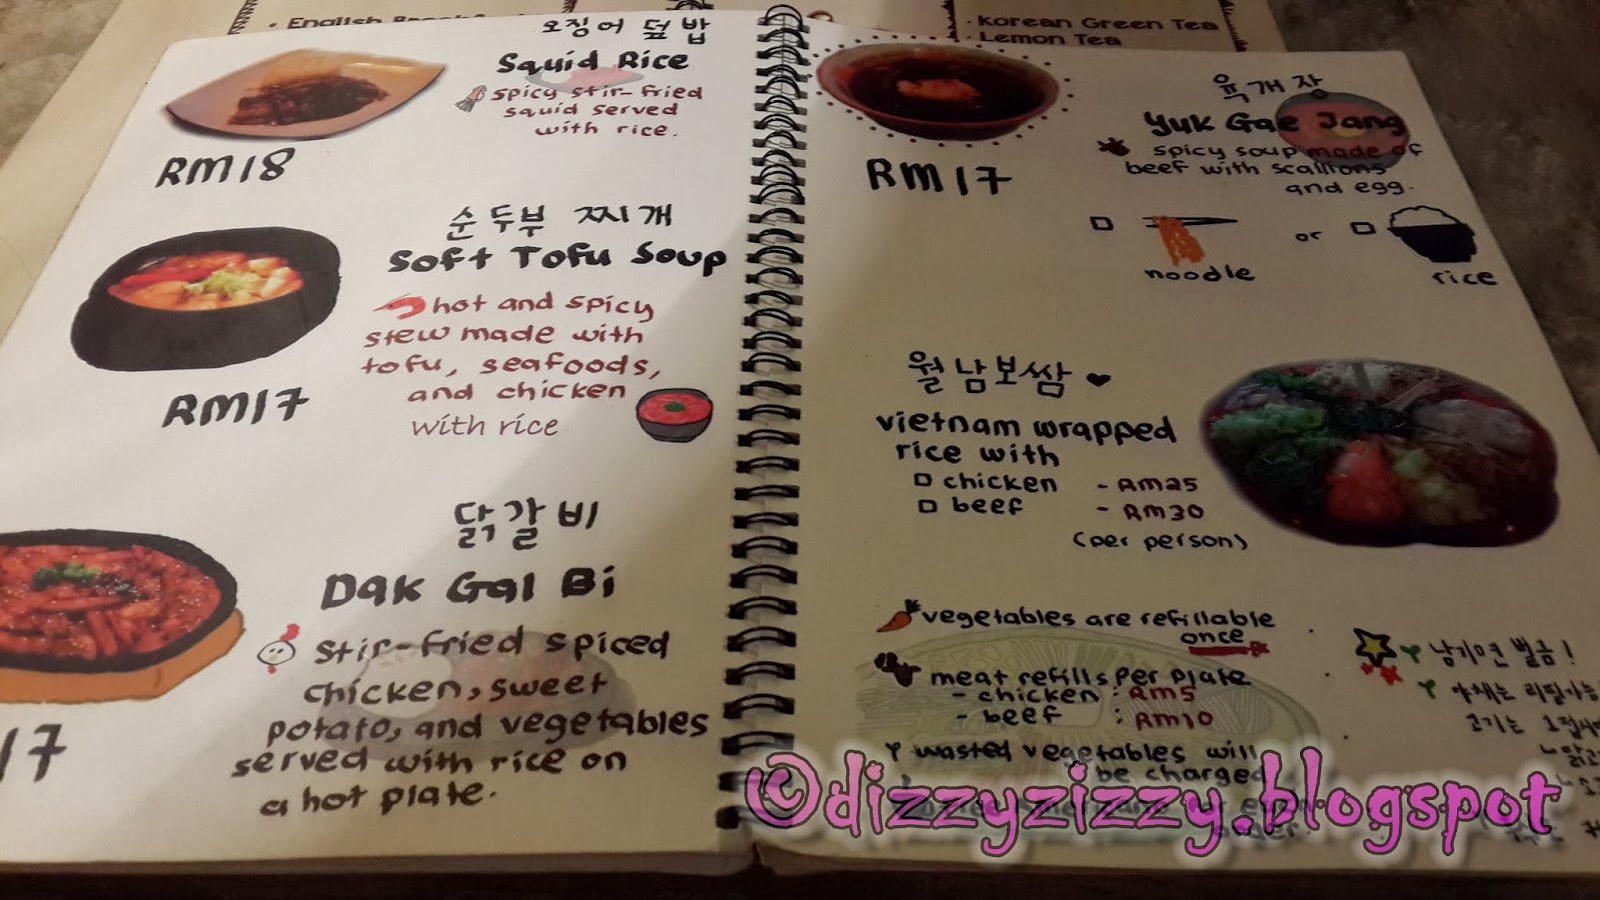 • English
오징어 덮밥
Squid Rice
spicy stir-fried
squid served
with rice.
RM18
순두부 찌개
Soft Tofu Soup
hot and spicy
stew made with
tofu, seafoods,
and chicken
with rice
RM17
닭갈비
Dak Gal Bi
stir-fried spiced
chicken, sweet
potato, and vegetables
served with rice on
a hot plate.
17
• Korean Green Tea
Lemon Tea
육개장
Yuk Gae Jang
spicy soup made of
beef with scallions
and egg.
RM17
noodle or rice
월남보쌈
vietnam wrapped
rice with
chicken - RM25
beef - RM30
(per person)
vegetables are refillable
once
meat refills per plate
- chicken : RM5
- beef : RM10
wasted vegetables will
be charged
남기면 벌금!
야채는 리필가능
고기는
©dizzyzizzy.blogspot